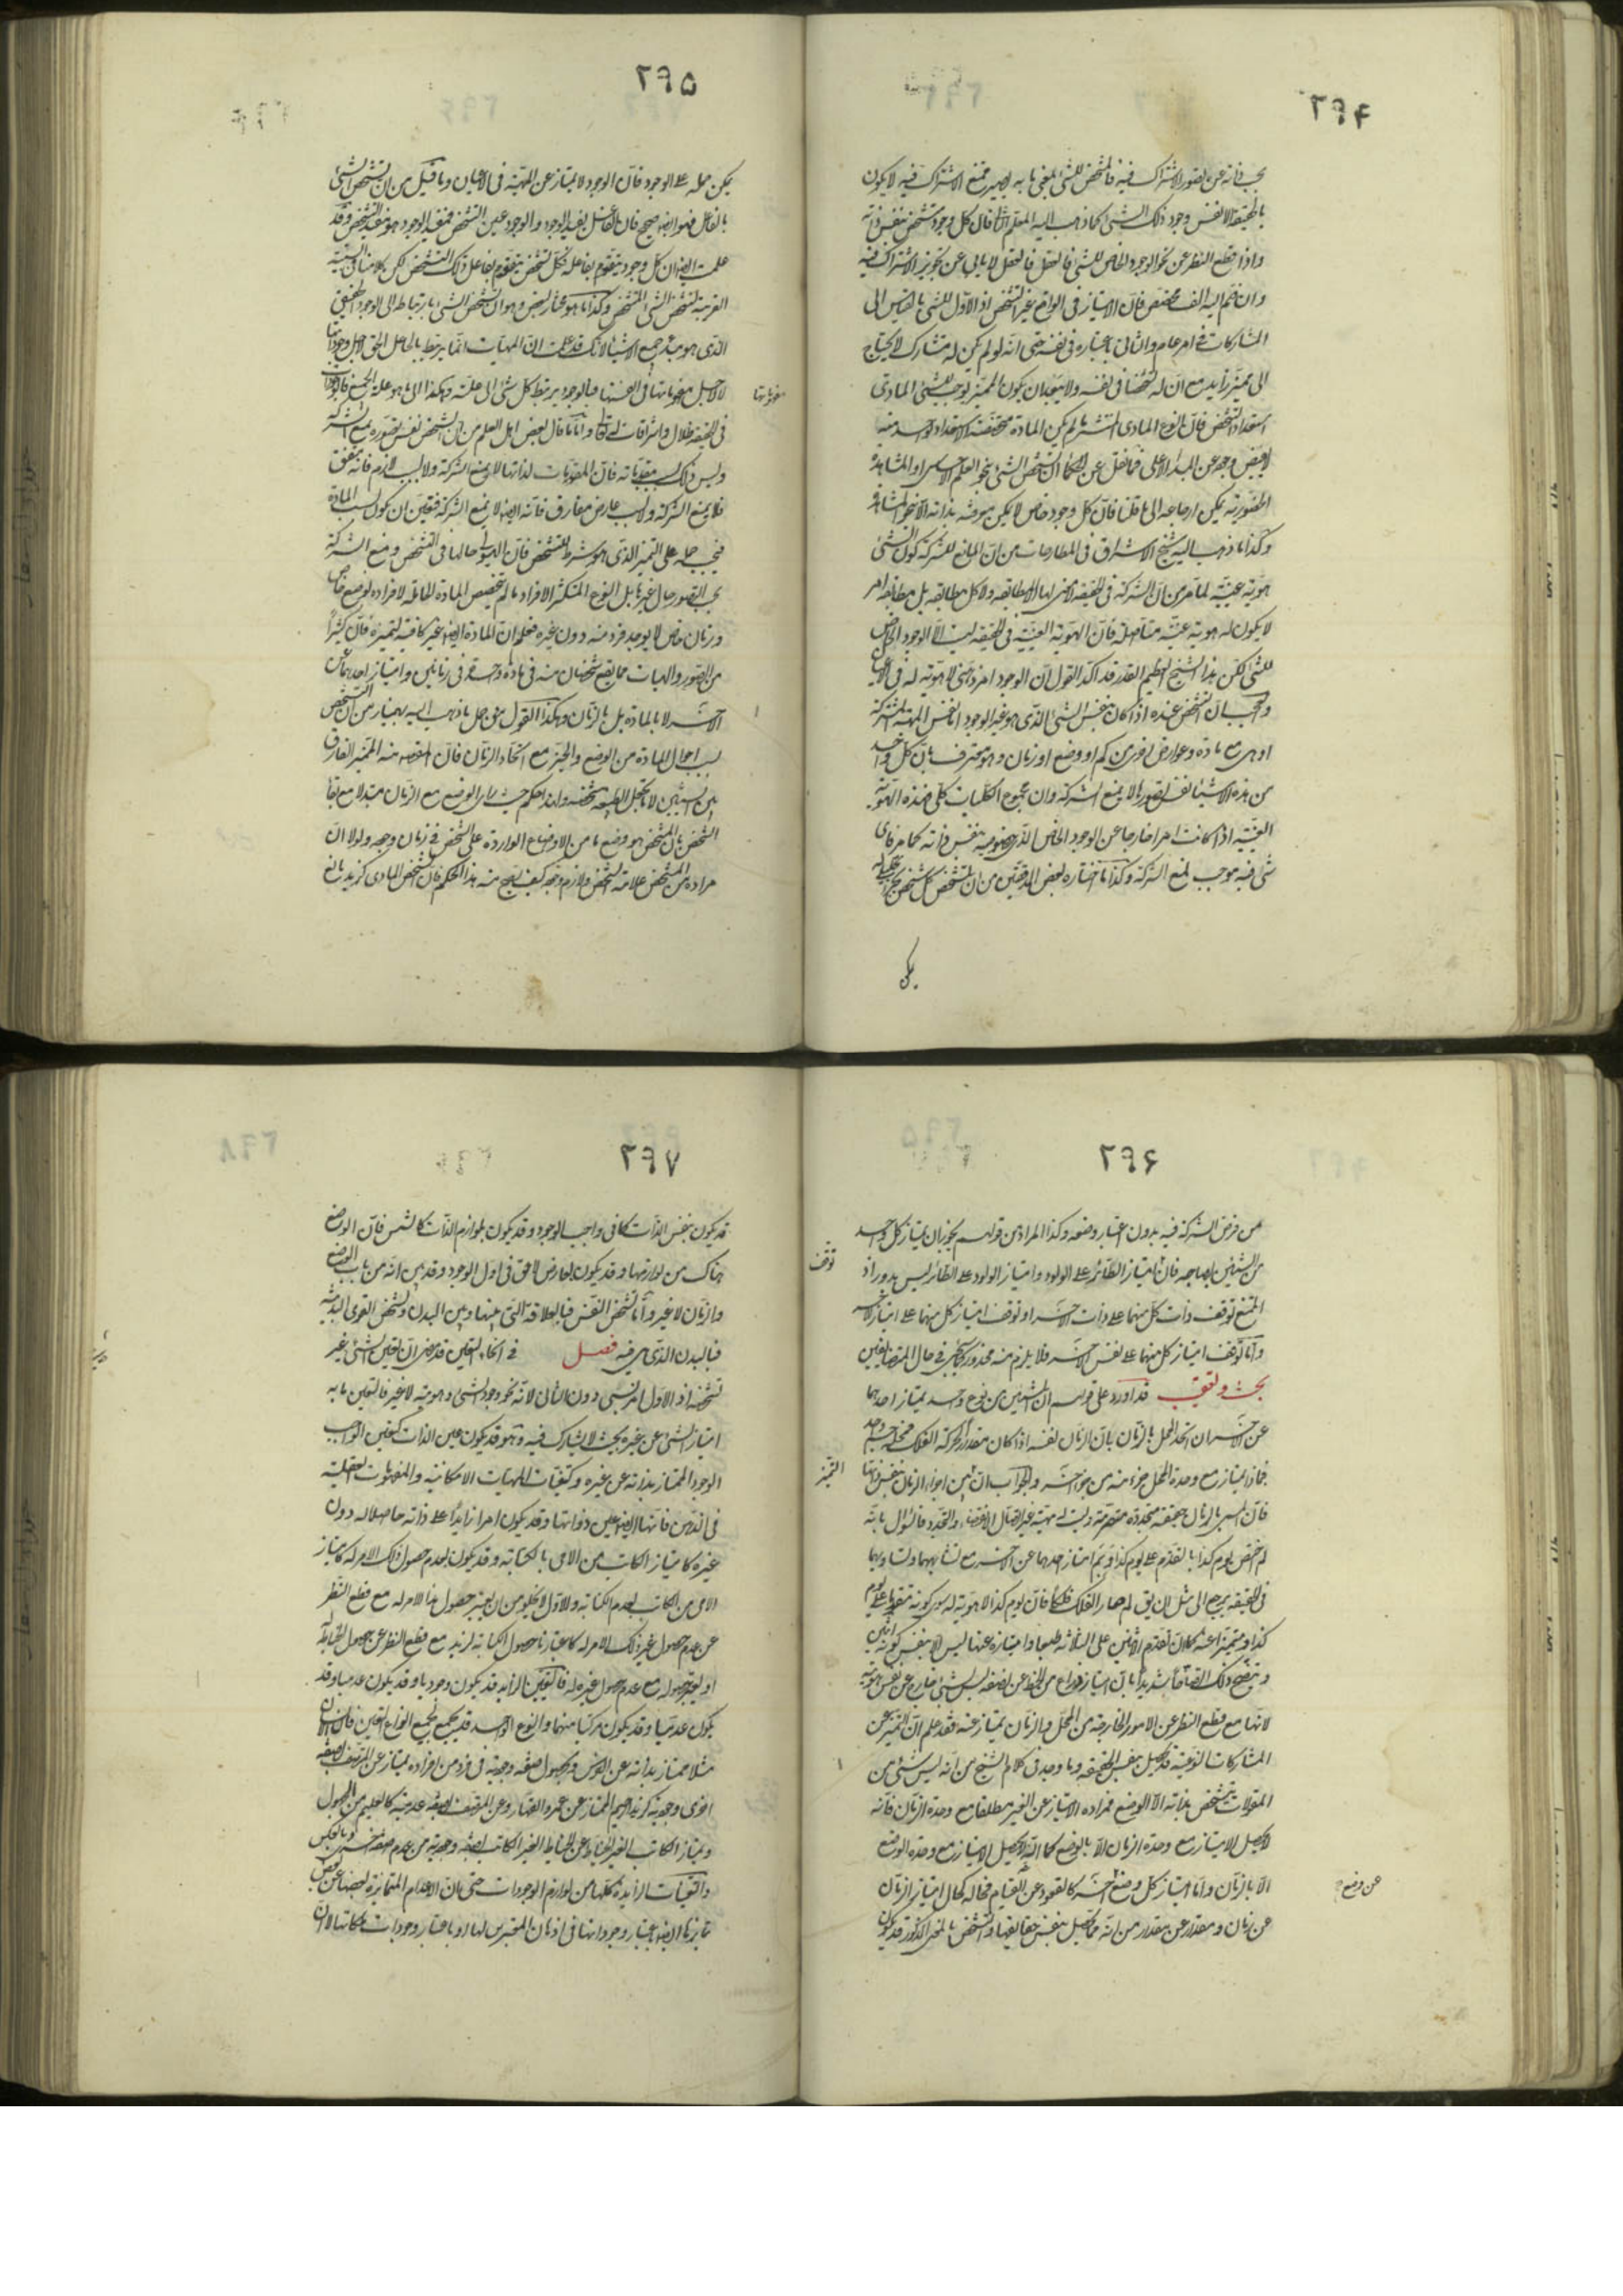 ۲۹۴
بحسب ذاته عن تصور الاشتراك فيه فالمشخص للشيء بمعنى ما به يصير ممتنع الاشتراك فيه لا يكون
بالحقيقة الا نفس وجود ذلك الشيء كما ذهب اليه المعلم الثاني فان كل وجود متشخص بنفس ذاته
واذا قطع النظر عن نحو الوجود الخاص للشيء فالعقل لا يابى عن تجويز الاشتراك فيه
وان ضم اليه الف مخصص فان الامتياز في الواقع غير التشخص اذ الاول للشيء بالقياس الى
المشاركات في امر عام والثاني باعتباره في نفسه حتى انه لو لم يكن له مشارك لا يحتاج
الى مميز زايد مع ان له تشخصا في نفسه ولا يبعد ان يكون التميز يوجب للشيء المادي
استعداد التشخص فان النوع المادي المنتشر ما لم يكن المادة متخصصة الاستعداد لواحد منه
لا يفيض وجوده عن المبدا الاعلى فما نقل عن الحكما ان تشخص الشيء بنحو العلم الاحساسي او المشاهدة
الحضورية يمكن ارجاعه الى ما قلنا فان كل وجود خاص لا يمكن معرفته بذاته الا بنحو المشاهدة
وكذا ما ذهب اليه شيخ الاشراق في المطارحات من ان المانع للشركة كون الشيء
هوية عينية
لا يكون له هوية عينية متاصلة فان الهوية العينية في الحقيقة ليست الا الوجود الخاص
للشيء لكن هذا الشيخ العظيم القدر قد اكد القول ان الوجود امر ذهني لا هوية له في الاعيان
والعجب ان التشخص عنده اذا كان بنفس الشيء الذي هو غير الوجود اما نفس المهية المشتركة
او هي مع مادة وعوارض اخرى من كم او وضع او زمان وهو معترف بان كل واحد
من هذه الاشياء نفس تصورها لا يمنع الشركة وان مجموع الكليات كلي فهذه الهوية
العينية اذا كانت امرا خارجا عن الوجود الخاص الذي خصوصيته بنفس ذاته كما مر فاي
شيء فيه موجب لمنع الشركة وكذا ما اختاره بعض المدققين من ان تشخص كل شخص بجزء تحليلي له
يمكن
۲۹۵
يمكن حمله على الوجود فان الوجود لا يمتاز عن المهية في الاعيان وما قيل من ان تشخص الشيء
بالفاعل فهو ايضا صحيح فان الفاعل يفيد الوجود والوجود عين التشخص فمفيد الوجود هو مفيد التشخص وقد
علمت ايضا ان كل وجود يتقوم بفاعله فكل تشخص يتقوم بفاعل ذلك التشخص لكن
القريبة لتشخص الشيء المتشخص وكذا ما هو مختار بعض وهو ان تشخص الشيء بارتباطه الى الوجود الحقيقي
الذي هو مبدء جميع الاشياء لانك قد علمت ان المهيات انما يرتبط بالجاعل الحق لاجل وجوداتها
لا لاجل مفهوماتها في انفسها فبالوجود يرتبط كل شيء الى علته وهكذا الى ما هو علة الجميع فالوجودات
مفهوماتها
في الحقيقة ظلال واشراقات له تعالى واما ما قال بعض اهل العلم من ان الشخص نفس تصوره يمنع الشركة
وليس ذلك بسبب مقوماته فان المقومات لذاتها لا يمنع الشركة ولا بسبب لازم فانه متفق
فلا يمنع الشركة ولا بسبب عارض مفارق فانه ايضا لا يمنع الشركة فتعين ان يكون بسبب المادة
فيجب حمله على التميز الذي هو شرط للتشخص فان الهيولى حالها في التشخص ومنع الشركة
بحسب التصور حال غيرها بل النوع المتكثر الافراد ما لم يتخصص المادة الحاملة لافراده بوضع خاص
وزمان خاص لا يوجد فرد منه دون غيره فعلم ان المادة ايضا غير كافية لتميزه فان كثيرا
من الصور والهيات مما يقع شخصان منه في مادة واحدة في زمانين وامتياز احدهما عن
الآخر لا بالمادة بل بالزمان وهكذا القول حق حمل ما ذهب اليه بهمنيار من ان التشخص
بسبب احوال المادة من الوضع والحيز مع اتحاد الزمان فان المقصود منه المميز الفارق
بين الشيئين لا ما يجعل الطبيعة شخصية ولهذا حكم حيث راى الوضع مع الزمان متبدلا مع بقاء
الشخص بان المشخص هو وضع ما من الاوضاع الواردة على الشخص في زمان وجوده ولولا ان
مراده من المشخص علامة التشخص ولازم وجوده كيف يصح منه هذا الحكم فان الشخص المادي كزيد ما نع
۲۹۶
من فرض الشركة فيه بدون اعتبار وضعه وكذا المراد من قولهم يجوز ان يمتاز كل واحد
من الشيئين بصاحبه فان امتياز الطائر على الولود وامتياز الولود على الطائر ليس بدور اذ
توقف
الممتنع توقف ذات كل منهما على ذات الآخر او توقف امتياز كل منهما على امتياز الآخر
واما توقف امتياز كل منهما على نفس الآخر فلا يلزم منه محذور كما يجيء في حال المتضايفين
بحث وتعقيب قد اورد على قولهم ان الشيئين من نوع واحد يمتاز احدهما
عن الآخر ان اتحد المحل بالزمان بان الزمان نفسه اذا كان مقدار الحركة الفلك فمحله جسم واحد
فبماذا يمتاز مع وحدة المحل جزء منه من جزء آخر والجواب ان التميز بين اجزاء الزمان بنفس ذاتها
التميز
فان المسمى بالزمان حقيقة متجددة متصرمة وليست له مهية غير اتصال الانقضاء والتجدد فالسؤال بانه
لم اختص يوم كذا بالتقدم على يوم كذا وبم امتاز احدهما عن الآخر مع تشابههما وتساويهما
في الحقيقة يرجع الى مثل ان يق لم صار الفلك فلكا فان يوم كذا لا هوية له سوى كونه متقدما على يوم
كذا ومتميزا عنه كما ان تقدم الاثنين على الثلاثة طبعا وامتيازه عنها ليس الا بنفس كونه اثنين
ويتضح ذلك اتضاحا شديدا بان امتياز ذراع من الخط عن نصفه ليس بشيء خارج عن نفس هويته
لانها مع قطع النظر عن الامور الخارجة من المحل والزمان يمتاز عنه فقد علم ان التميز عن
المشاركات النوعية قد يحصل بنفس الحقيقة وما وجد في كلام الشيخ من انه ليس شيء من
المقولات يتشخص بذاته الا الوضع فمراده الامتياز عن الغير مطلقا مع وحدة الزمان فانه
لا يحصل الامتياز مع وحدة الزمان الا بالوضع كما انه لا يحصل الامتياز مع وحدة الوضع
الا بالزمان واما امتياز كل وضع آخر كالقعود عن القيام فحاله كحال امتياز الزمان
عن وضع
عن زمان ومقدار عن مقدار من انه مما يحصل بنفس حقايقها والتشخص بالمعنى المذكور قد يكون
۲۹۷
قد يكون بنفس الذات كما في واجب الوجود وقد يكون بلوازم الذات كالشمس فان الوضع
هناك من لوازمها وقد يكون بعارض لاحق في اول الوجود وقد بين انه من باب الوضع
والزمان لا غير واما تشخص النفس فبالعلاقة التي بينها وبين البدن وتشخص القوى البدنية
فبالبدن الذي هي فيه فصل في انحاء التعين قد مضى ان تعين الشيء غير
تشخصه اذ الاول امر نسبي دون الثاني لانه نحو وجود الشيء وهويته لا غير فالتعين ما به
امتياز الشيء عن غيره بحيث لا يشاركه فيه وهو قد يكون عين الذات كتعين الواجب
الوجود الممتاز بذاته عن غيره وكتعينات المهيات الامكانية والمفهومات العقلية
في الذهن فانها ايضا عين ذواتها وقد يكون امرا زايدا على ذاته حاصلا له دون
غيره كامتياز الكاتب من الامي بالكتابة وقد يكون لعدم حصول ذلك الامر له كامتياز
الامي من الكاتب بعدم الكتابة والاول لا يخلو من ان يعتبر حصول هذا الامر له مع قطع النظر
عن عدم حصول غير ذلك الامر له كاعتبارنا حصول الكتابة لزيد مع قطع النظر عن عدم حصول الخياطة له
او يعتبر حصوله مع عدم حصول غيره له فالتعين الزايد قد يكون وجوديا وقد يكون عدميا وقد
يكون عدميا وقد يكون مركبا منهما والنوع الواحد قد يجمع جميع انواع التعين فان الانسان
مثلا ممتاز بذاته عن الفرس وبحصول صفة وجودية في فرد من افراده يمتاز عن المتصف بصفة
اخرى وجودية كزيد الرحيم الممتاز عن عمرو القهار وعن المتصف بصفة عدمية كالعليم من الجهول
ويمتاز الكاتب الغير الخياط عن الخياط الغير الكاتب بصفة وجودية مع عدم صفة اخرى وبالعكس
والتعينات الزايدة كلها من لوازم الوجودات حتى ان الاعدام المتمايزة بعضها عن بعض
تمايزها ايضا باعتبار وجوداتها في اذهان المعتبرين لها او باعتبار وجودات ملكاتها لا ان